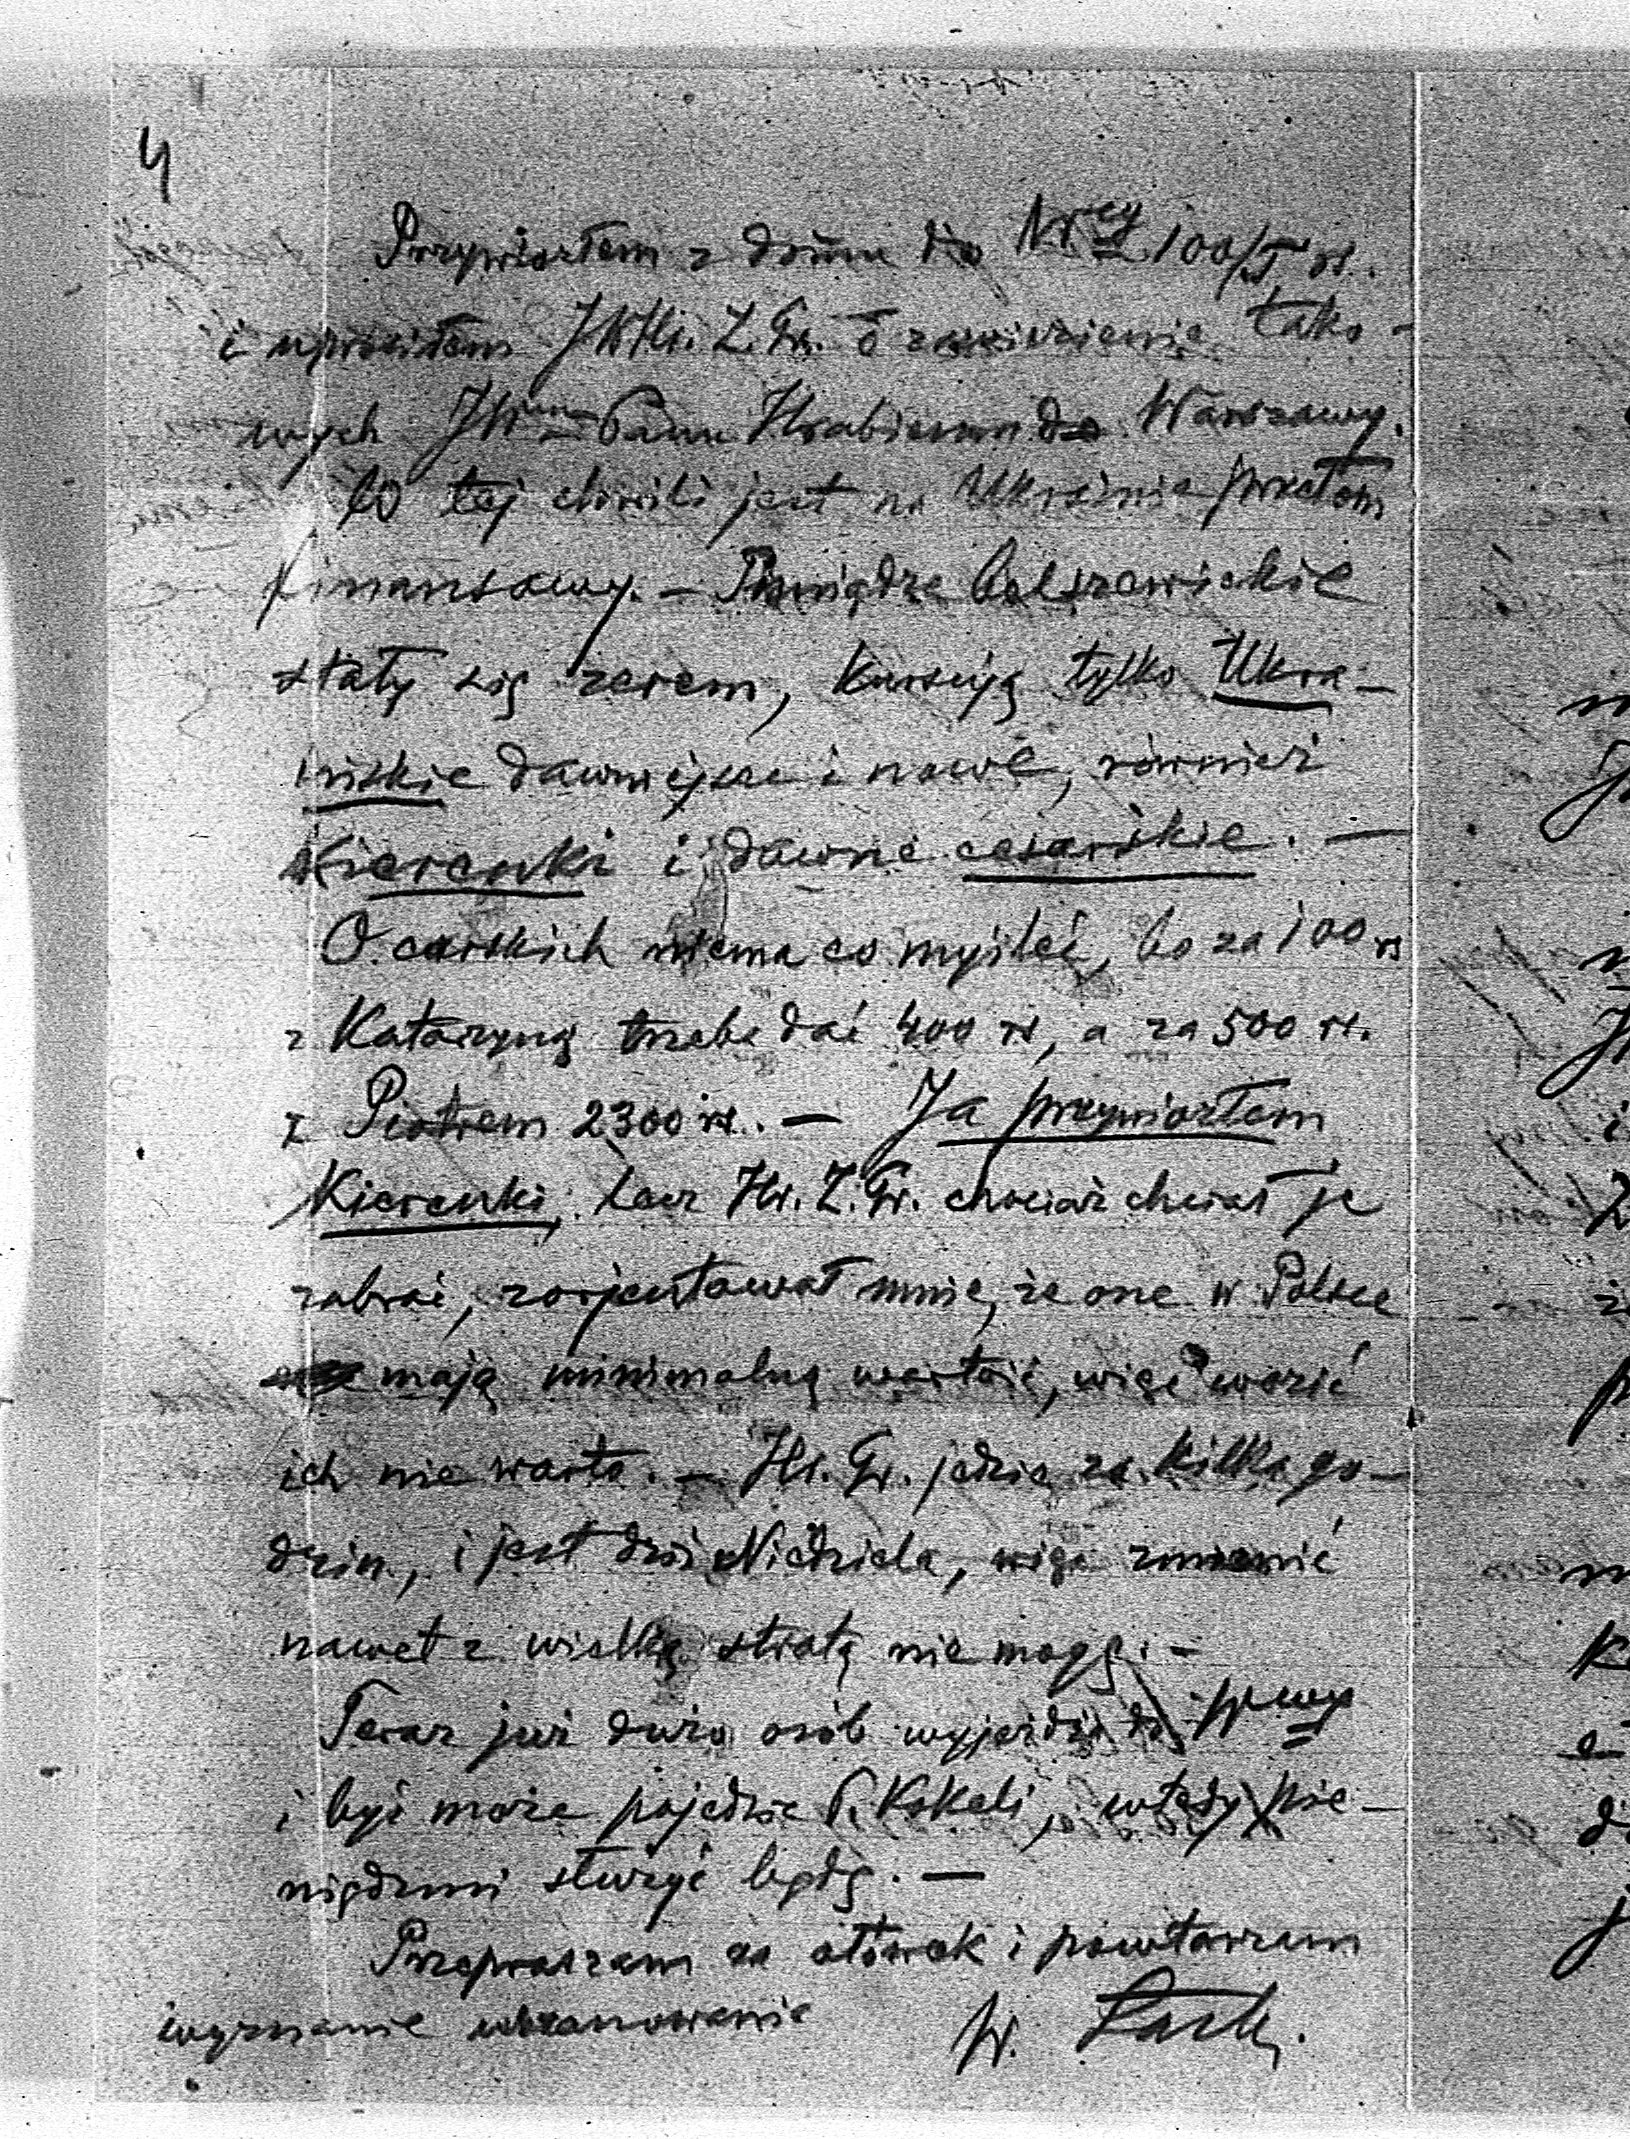 4
Przywiozłem z domu do W-wy 100/T rs.
i uprosiłem JWHr. Z. Gr. o zawiezienie tako-
wych JW Panu Hrabiemu do Warszawy.
W tej chwili jest na Ukrainie przełom
finansowy. – Pieniądze bolszewickie
stały się zerem, kursują tylko Ukra-
ińskie dawniejsze i nowe, również
Kierenki i dawne cesarskie. —
O carskich niema co myśleć, bo za 100 rs
z Katarzyną trzeba dać 400 rs, a za 500 rs.
z Piotrem 2300 rs. — Ja przywiozłem
Kierenki, lecz Hr. Z. Gr. chociaż chciał je
zabrać, zorjentował mnie, że one w Polsce
mają minimalną wartość, więc wozić
ich nie warto. – Hr. Gr. jedzie za kilka go-
dzin, i jest dziś Niedziela, więc zmienić
nawet z wielką stratą nie mogę. –
Teraz już dużo osób wyjeżdża do W-wy
i być może pojedzie P. Kokeli, wtedy pie-
niędzmi służyć będę. —
Przepraszam za ołówek i powtarzam
wyznanie uszanowania W.